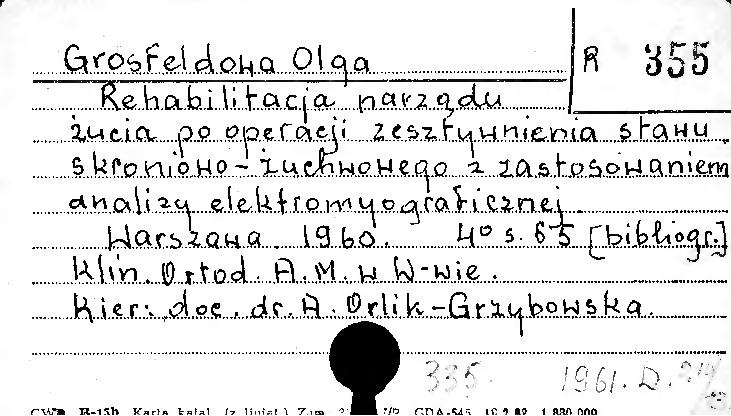 Grosfeldowa Olga
R 355
Rehabilitacja narządu
żucia po operacji zesztywnienia stawu
skroniowo-żuchwowego z zastosowaniem
analizy elektromyograficznej.
Warszawa 1960. 4° s. 65 [bibliogr.]
Klin. Ortod. A.M. w W-wie.
Kier.: doc. dr. A. Orlik-Grzybowska.
335. 1961. D.
Karta katal. (z liniat.) Zam. GDA-545